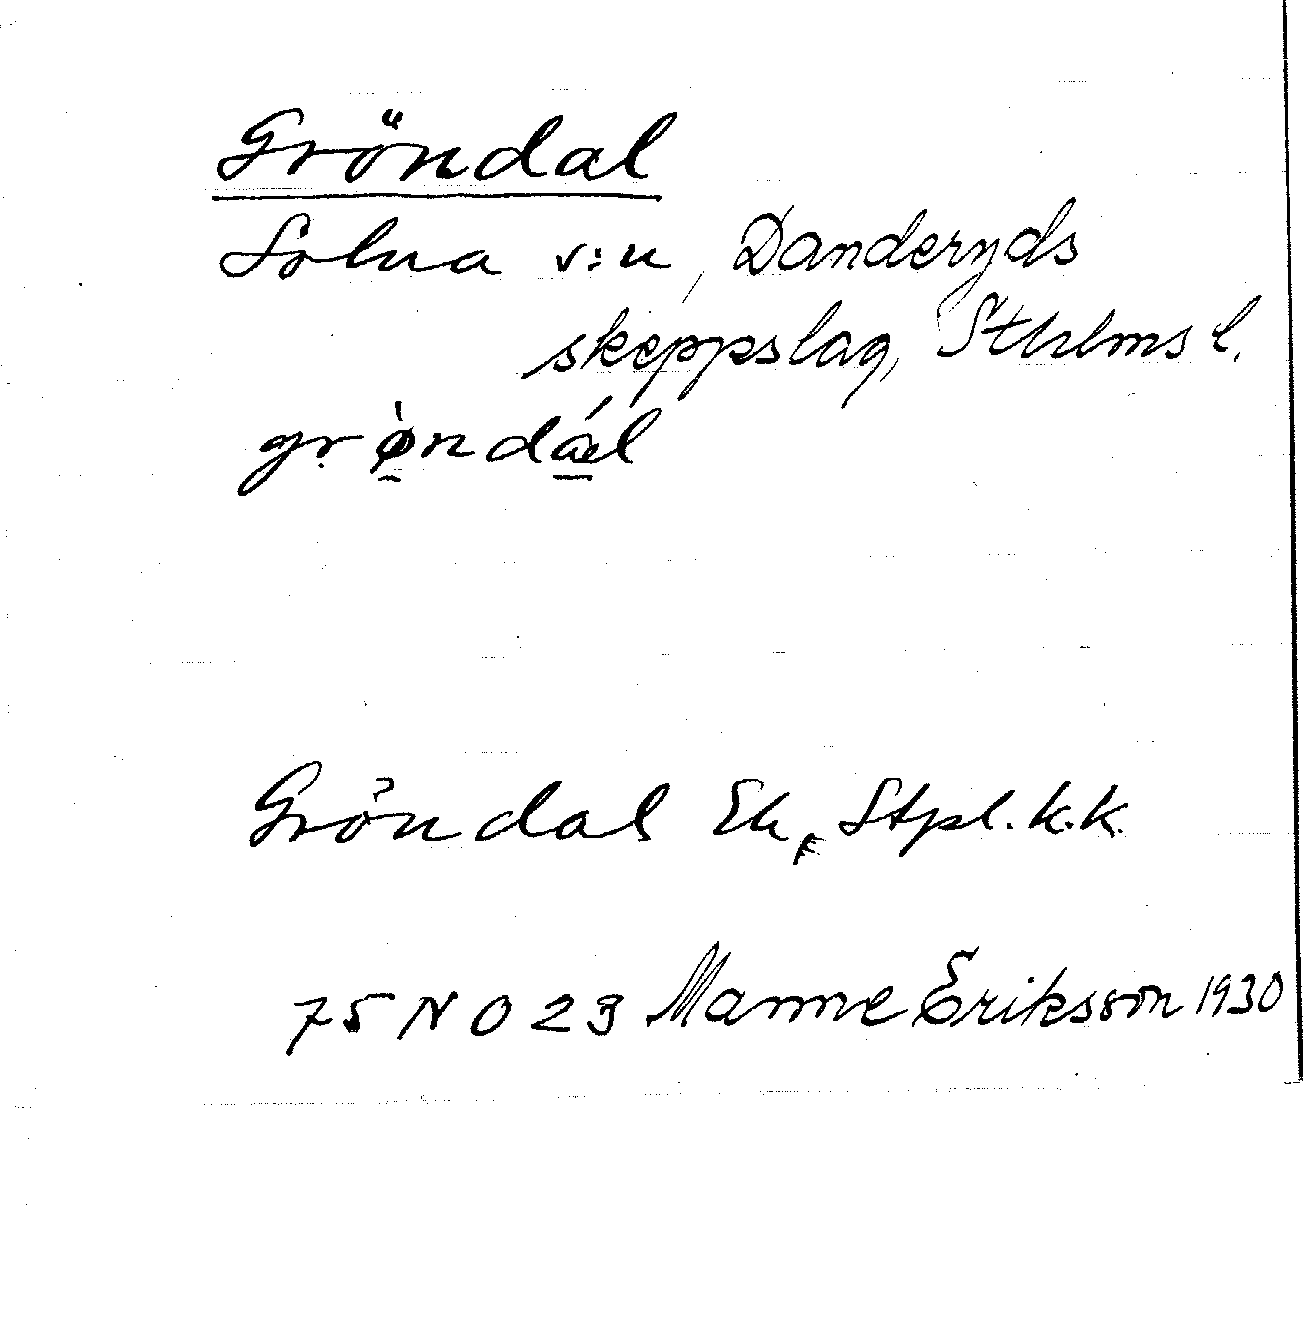 Gröndal
Solna s:n, Danderyds
skeppslag, Sthlms l.
grø̀ndáel
Gröndal Ek, Stpl. k.k.
75 NO 23 Manne Eriksson 1930